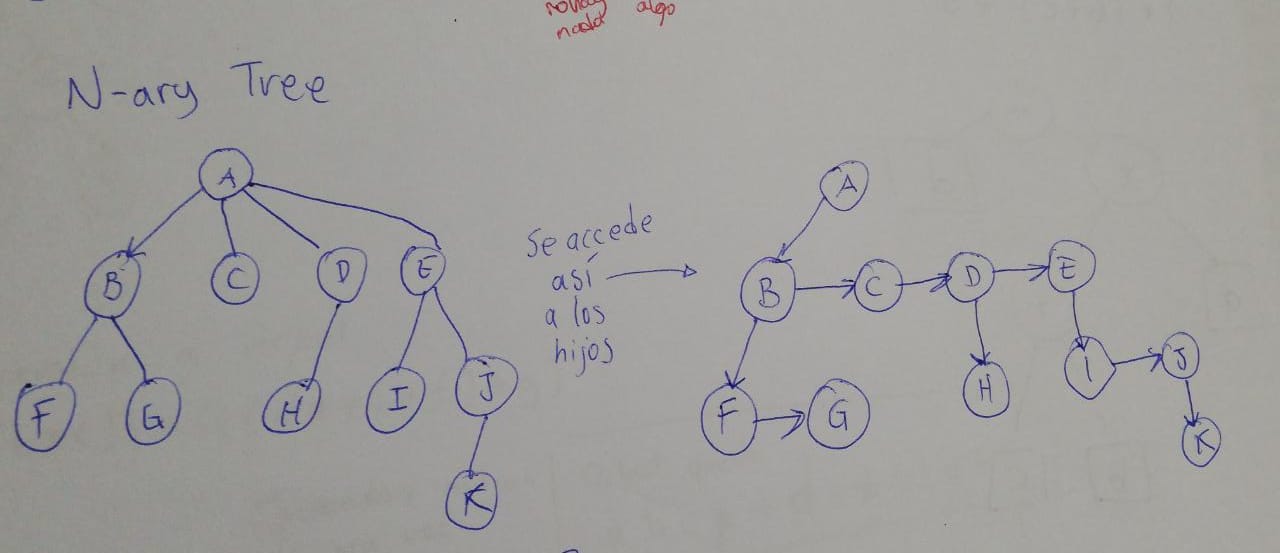 algo
nada
N-ary Tree
A
B C D E
F G H I J
K
Se accede
así
a los
hijos
A
B C D E
F G H I J
K